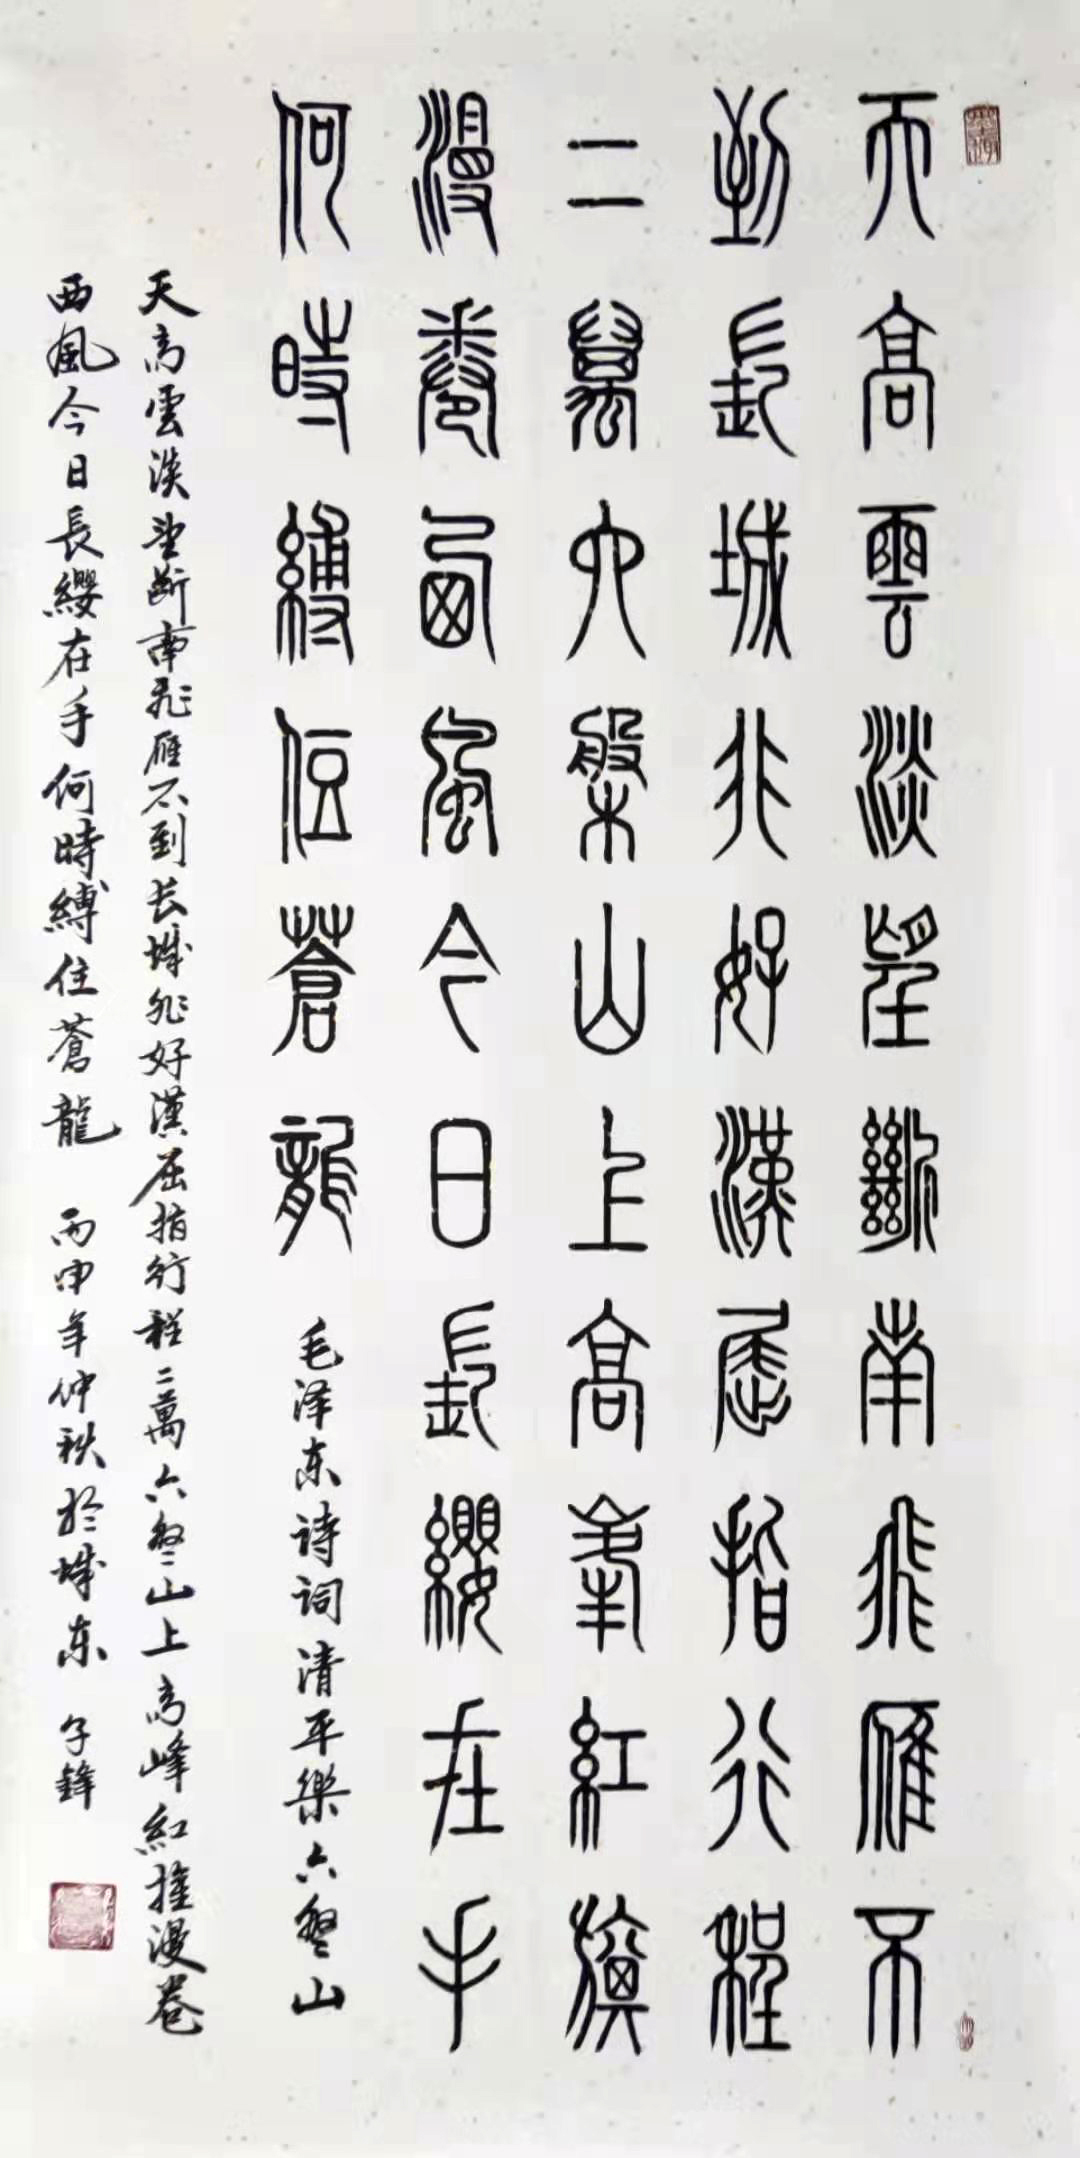 天高雲淡望斷南飛雁不
到長城非好漢屈指行程
二萬六槃山上高峯紅旗
漫卷西風今日長纓在手
何時縛住蒼龍 毛泽东诗词清平樂六盤山
天高雲淡望斷南飛雁不到长城非好漢屈指行程二萬六盤山上高峰紅旗漫卷
西風今日長纓在手何時縛住蒼龍 丙申年仲秋於城东 子鋒